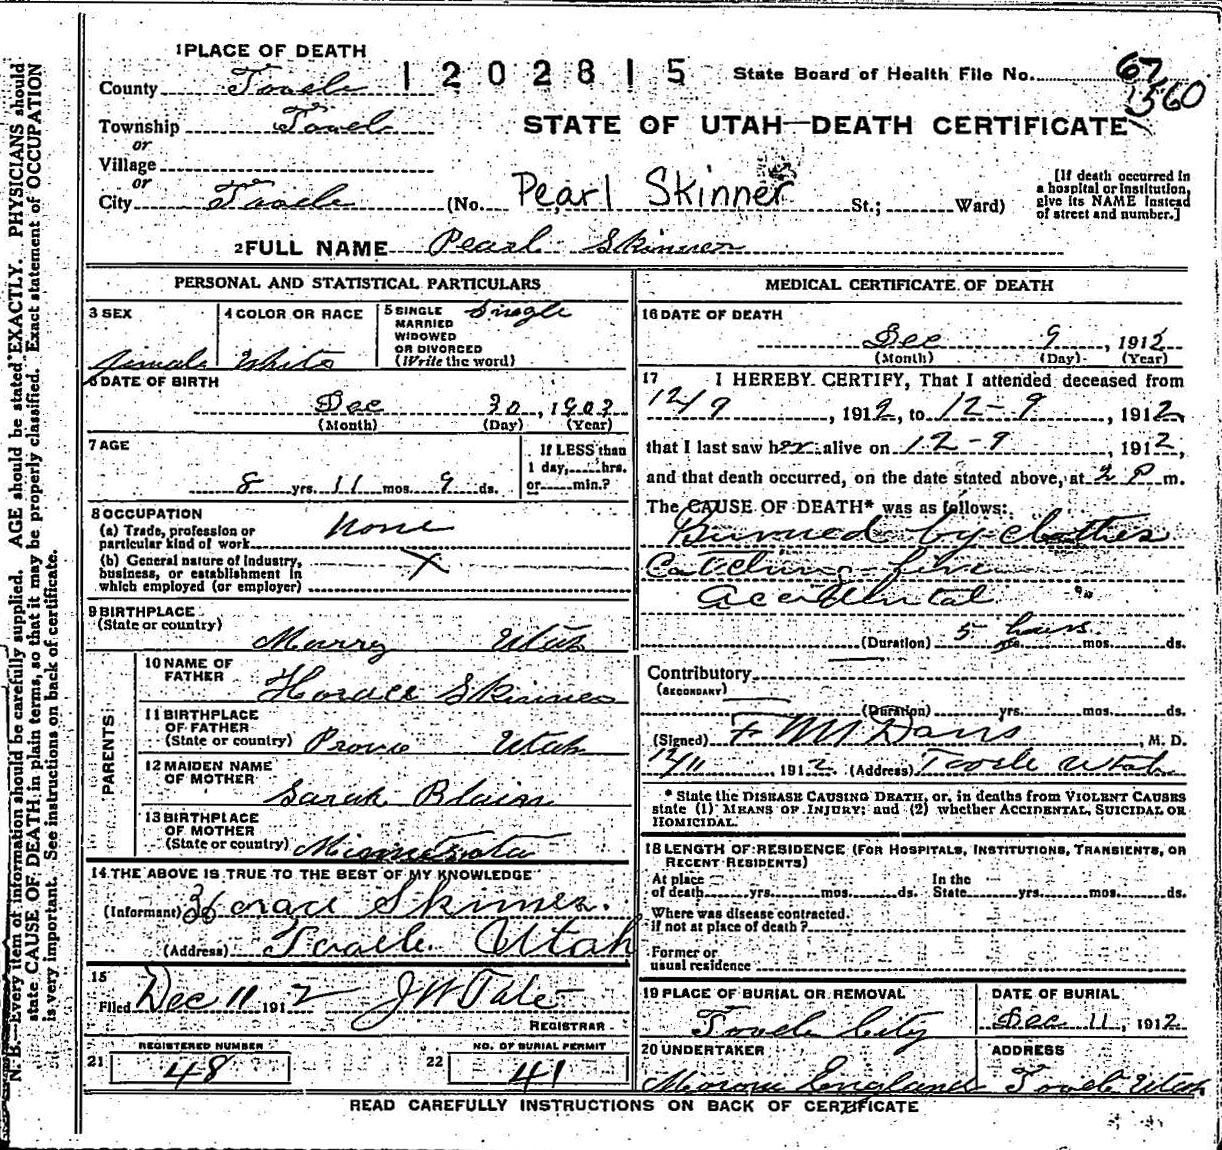 1 PLACE OF DEATH
County Tooele
1202815
State Board of Health File No. 67
1560
Township Tooele
or
Village
or
STATE OF UTAH—DEATH CERTIFICATE
City Tooele (No. Pearl Skinner St.; Ward)
[If death occurred in
a hospital or institution,
give its NAME instead
of street and number.]
2 FULL NAME Pearl Skinner
PERSONAL AND STATISTICAL PARTICULARS
3 SEX
Female
4 COLOR OR RACE
White
5 SINGLE
MARRIED
WIDOWED
OR DIVORCED
(Write the word)
Single
6 DATE OF BIRTH
Dec 30, 1903
(Month) (Day) (Year)
7 AGE
8 yrs. 11 mos. 9 ds.
If LESS than
1 day, hrs.
or min.?
8 OCCUPATION
(a) Trade, profession or
particular kind of work
None
(b) General nature of Industry,
business, or establishment in
which employed (or employer)
X
9 BIRTHPLACE
(State or country)
Murry Utah
PARENTS
10 NAME OF
FATHER
Horace Skinner
11 BIRTHPLACE
OF FATHER
(State or country) Provo Utah
12 MAIDEN NAME
OF MOTHER
Sarah Blair
13 BIRTHPLACE
OF MOTHER
(State or country) Minnesota
14 THE ABOVE IS TRUE TO THE BEST OF MY KNOWLEDGE
(Informant) Horace Skinner.
(Address) Tooele Utah
15
Filed Dec 11 1912 J W Tate
REGISTRAR
21 REGISTERED NUMBER
48
22 NO. OF BURIAL PERMIT
41
MEDICAL CERTIFICATE OF DEATH
16 DATE OF DEATH
Dec 9, 1912
(Month) (Day) (Year)
17 I HEREBY CERTIFY, That I attended deceased from
12/9, 1912, to 12-9, 1912,
that I last saw her alive on 12-9, 1912,
and that death occurred, on the date stated above, at 2 P m.
The CAUSE OF DEATH* was as follows:
Burned by clothes
Catching fire
accidental
(Duration) 5 hours yrs. mos. ds.
Contributory
(SECONDARY)
(Duration) yrs. mos. ds.
(Signed) F M Davis, M. D.
12/11, 1912. (Address) Tooele Utah
* State the DISEASE CAUSING DEATH, or, in deaths from VIOLENT CAUSES
state (1) MEANS OF INJURY; and (2) whether ACCIDENTAL, SUICIDAL OR
HOMICIDAL.
18 LENGTH OF RESIDENCE (FOR HOSPITALS, INSTITUTIONS, TRANSIENTS, OR
RECENT RESIDENTS)
At place
of death yrs. mos. ds.
In the
State yrs. mos. ds.
Where was disease contracted.
if not at place of death?
Former or
usual residence
19 PLACE OF BURIAL OR REMOVAL
Tooele City
DATE OF BURIAL
Dec 11, 1912
20 UNDERTAKER
Moroni England
ADDRESS
Tooele Utah
READ CAREFULLY INSTRUCTIONS ON BACK OF CERTIFICATE
N. B.—Every item of information should be carefully supplied. AGE should be stated EXACTLY. PHYSICIANS should
state CAUSE OF DEATH in plain terms, so that it may be properly classified. Exact statement of OCCUPATION
is very important. See instructions on back of certificate.